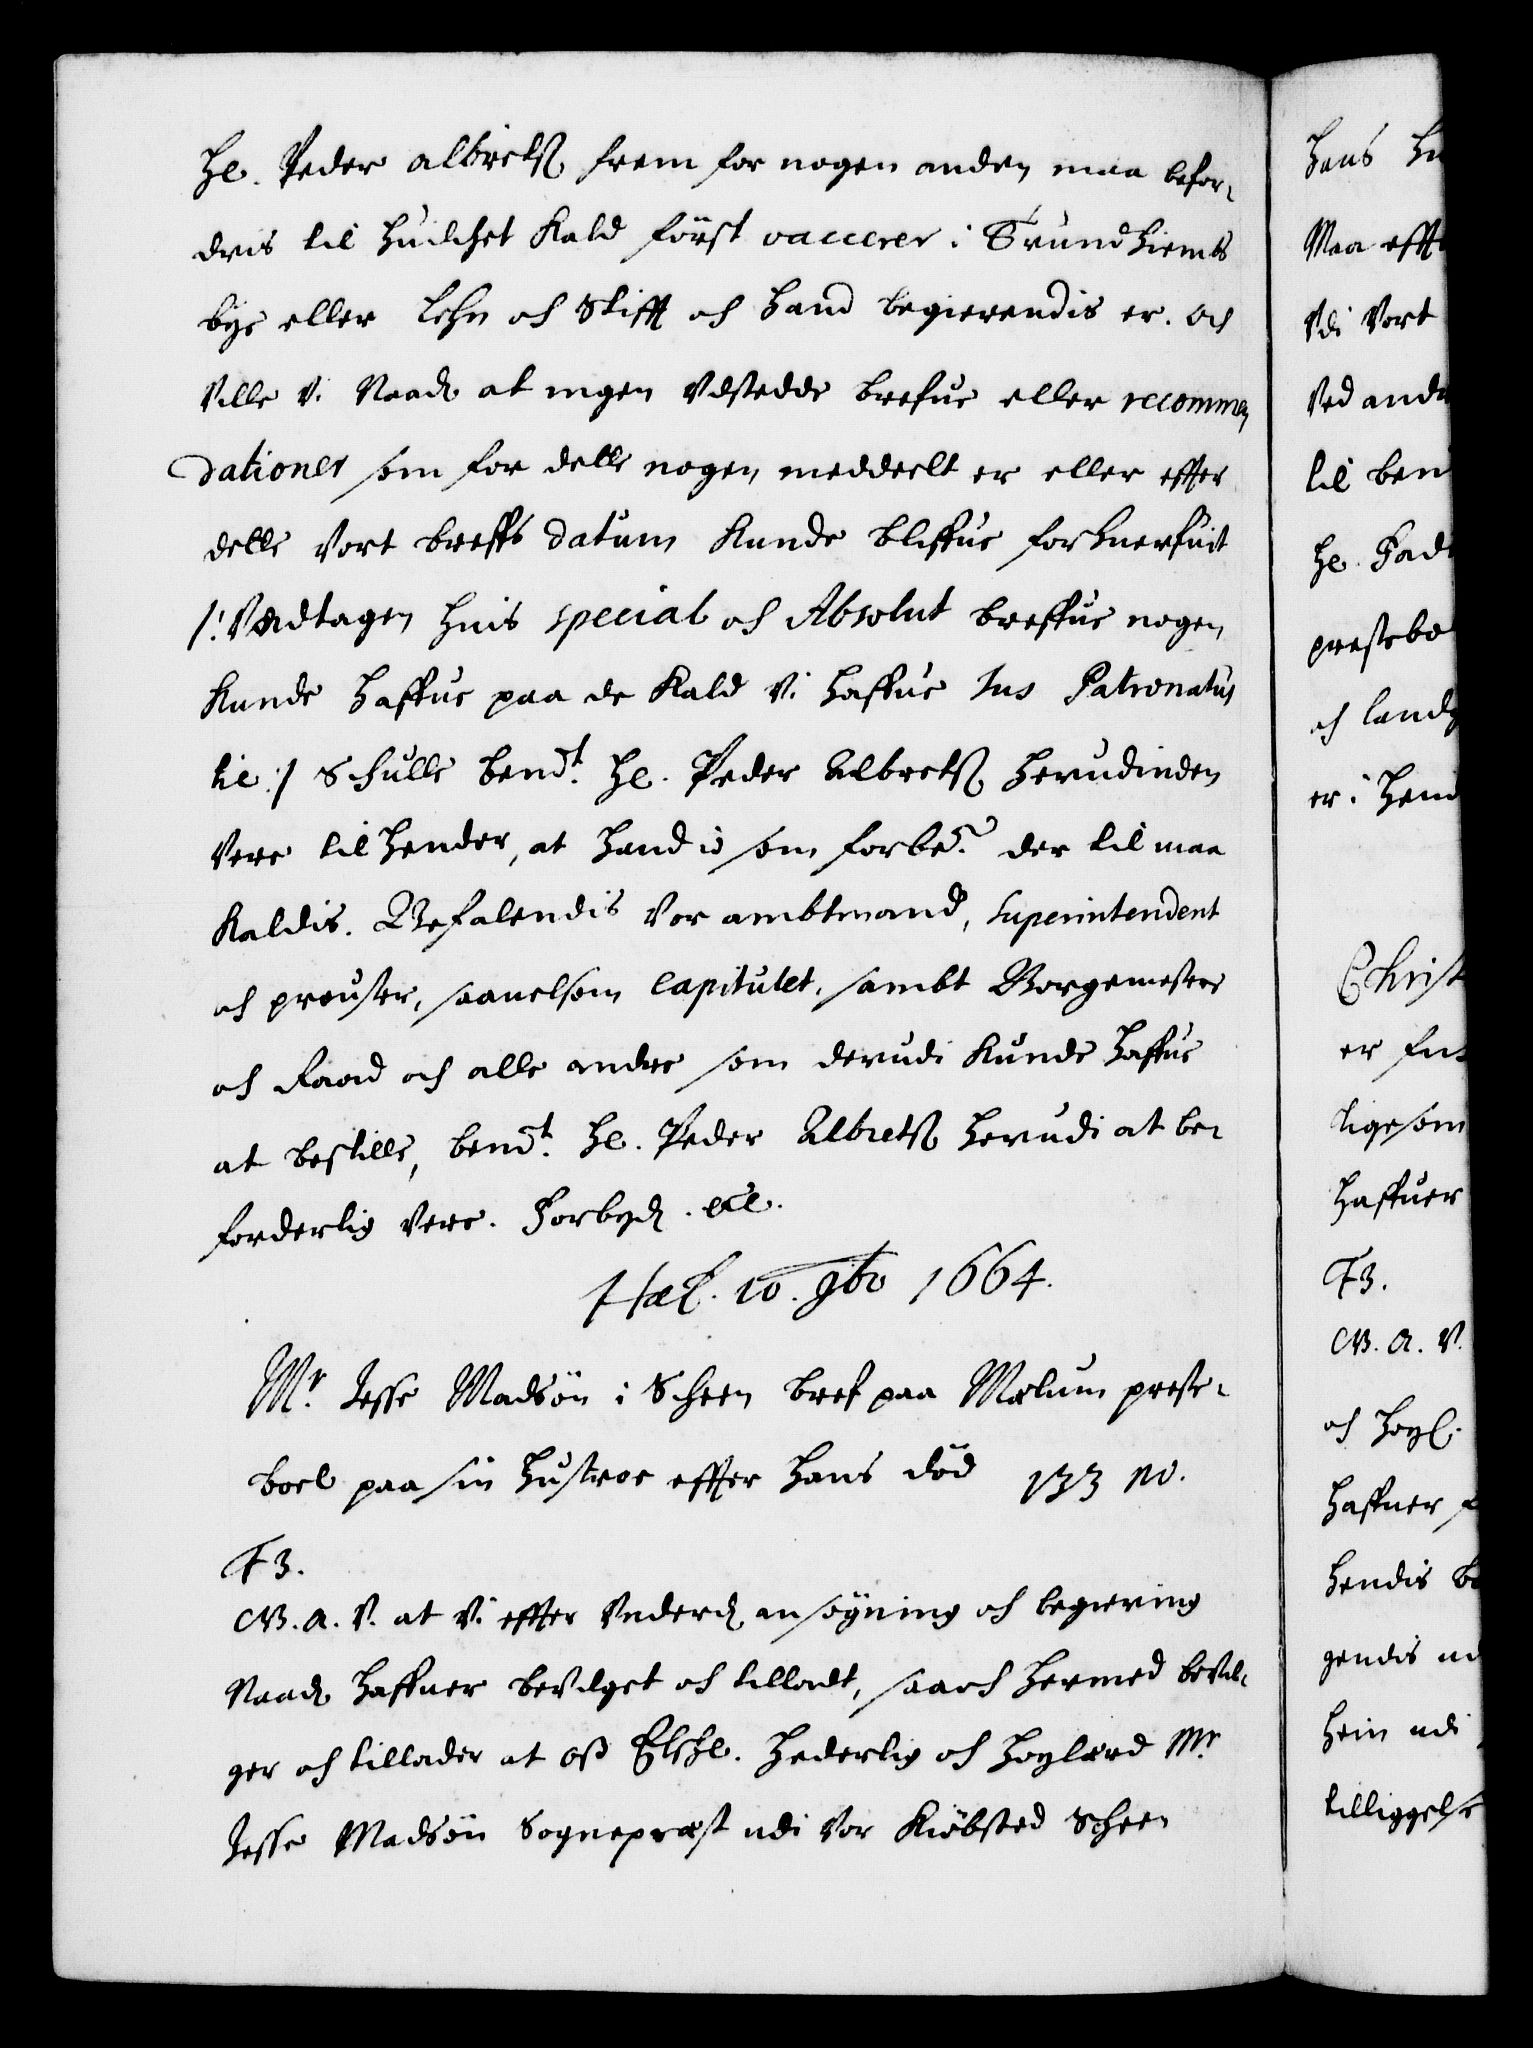 He. Peder albretß frem for nogen anden maa befor-
dris til huilchet Kald först vaccerer i Trundhiembs
bye eller Lehn och Stifft och hand begierendis er. Och
Ville Vi Naadl at ingen Vdstedde brefue eller recommen
dationer som for dette nogen meddeelt er eller effter
dette Vort breffs datum Kunde bliffue forhuerfuit
/: Vndtagen huis special och Absolut breffue nogen
Kunde haffue paa de Kald Vi haffue Jus Patronatus
til :/ Schulle bend.t He. Peder Albretß herudinden
Vere til hender, at hand io som forbe.te der til maa
Kaldis. Befalendis Vor ambtmand, Superintendent
och prouster, saauelsom Capitulet, sambt Borgemestere
och Raad och alle andre som derudi Kunde haffue
at bestille, bend.t He. Peder Albretß herudi at be-
forderlig Vere. Forbydl. etc.
Haf. 10. 9bo 1664.
Mr. Jesse Madsön i Scheen bref paa Mælum preste-
boel paa sin hustroe effter hans död
F3.
C.V.B. A. V. at Vi effter Vnderdl ansögning och begiering
Naadl haffuer beVilget och tilladt, saa och hermed beVil-
ger och tillader at oß Elskl. hederlig och hoylærd Mr.
Jesse Madsön Sogneprest udi Vor Kiöbsted Scheen
Maa efft
Vdi Vort
Ved and
til ben
He. Fad
prestebo
och land
er i hen
Christ
er fu
ligesom
haffuer
F3.
C.V.B. A. V.
och hoyl.
haffuer
hendis b
gendis
hein udi
tilliggelse